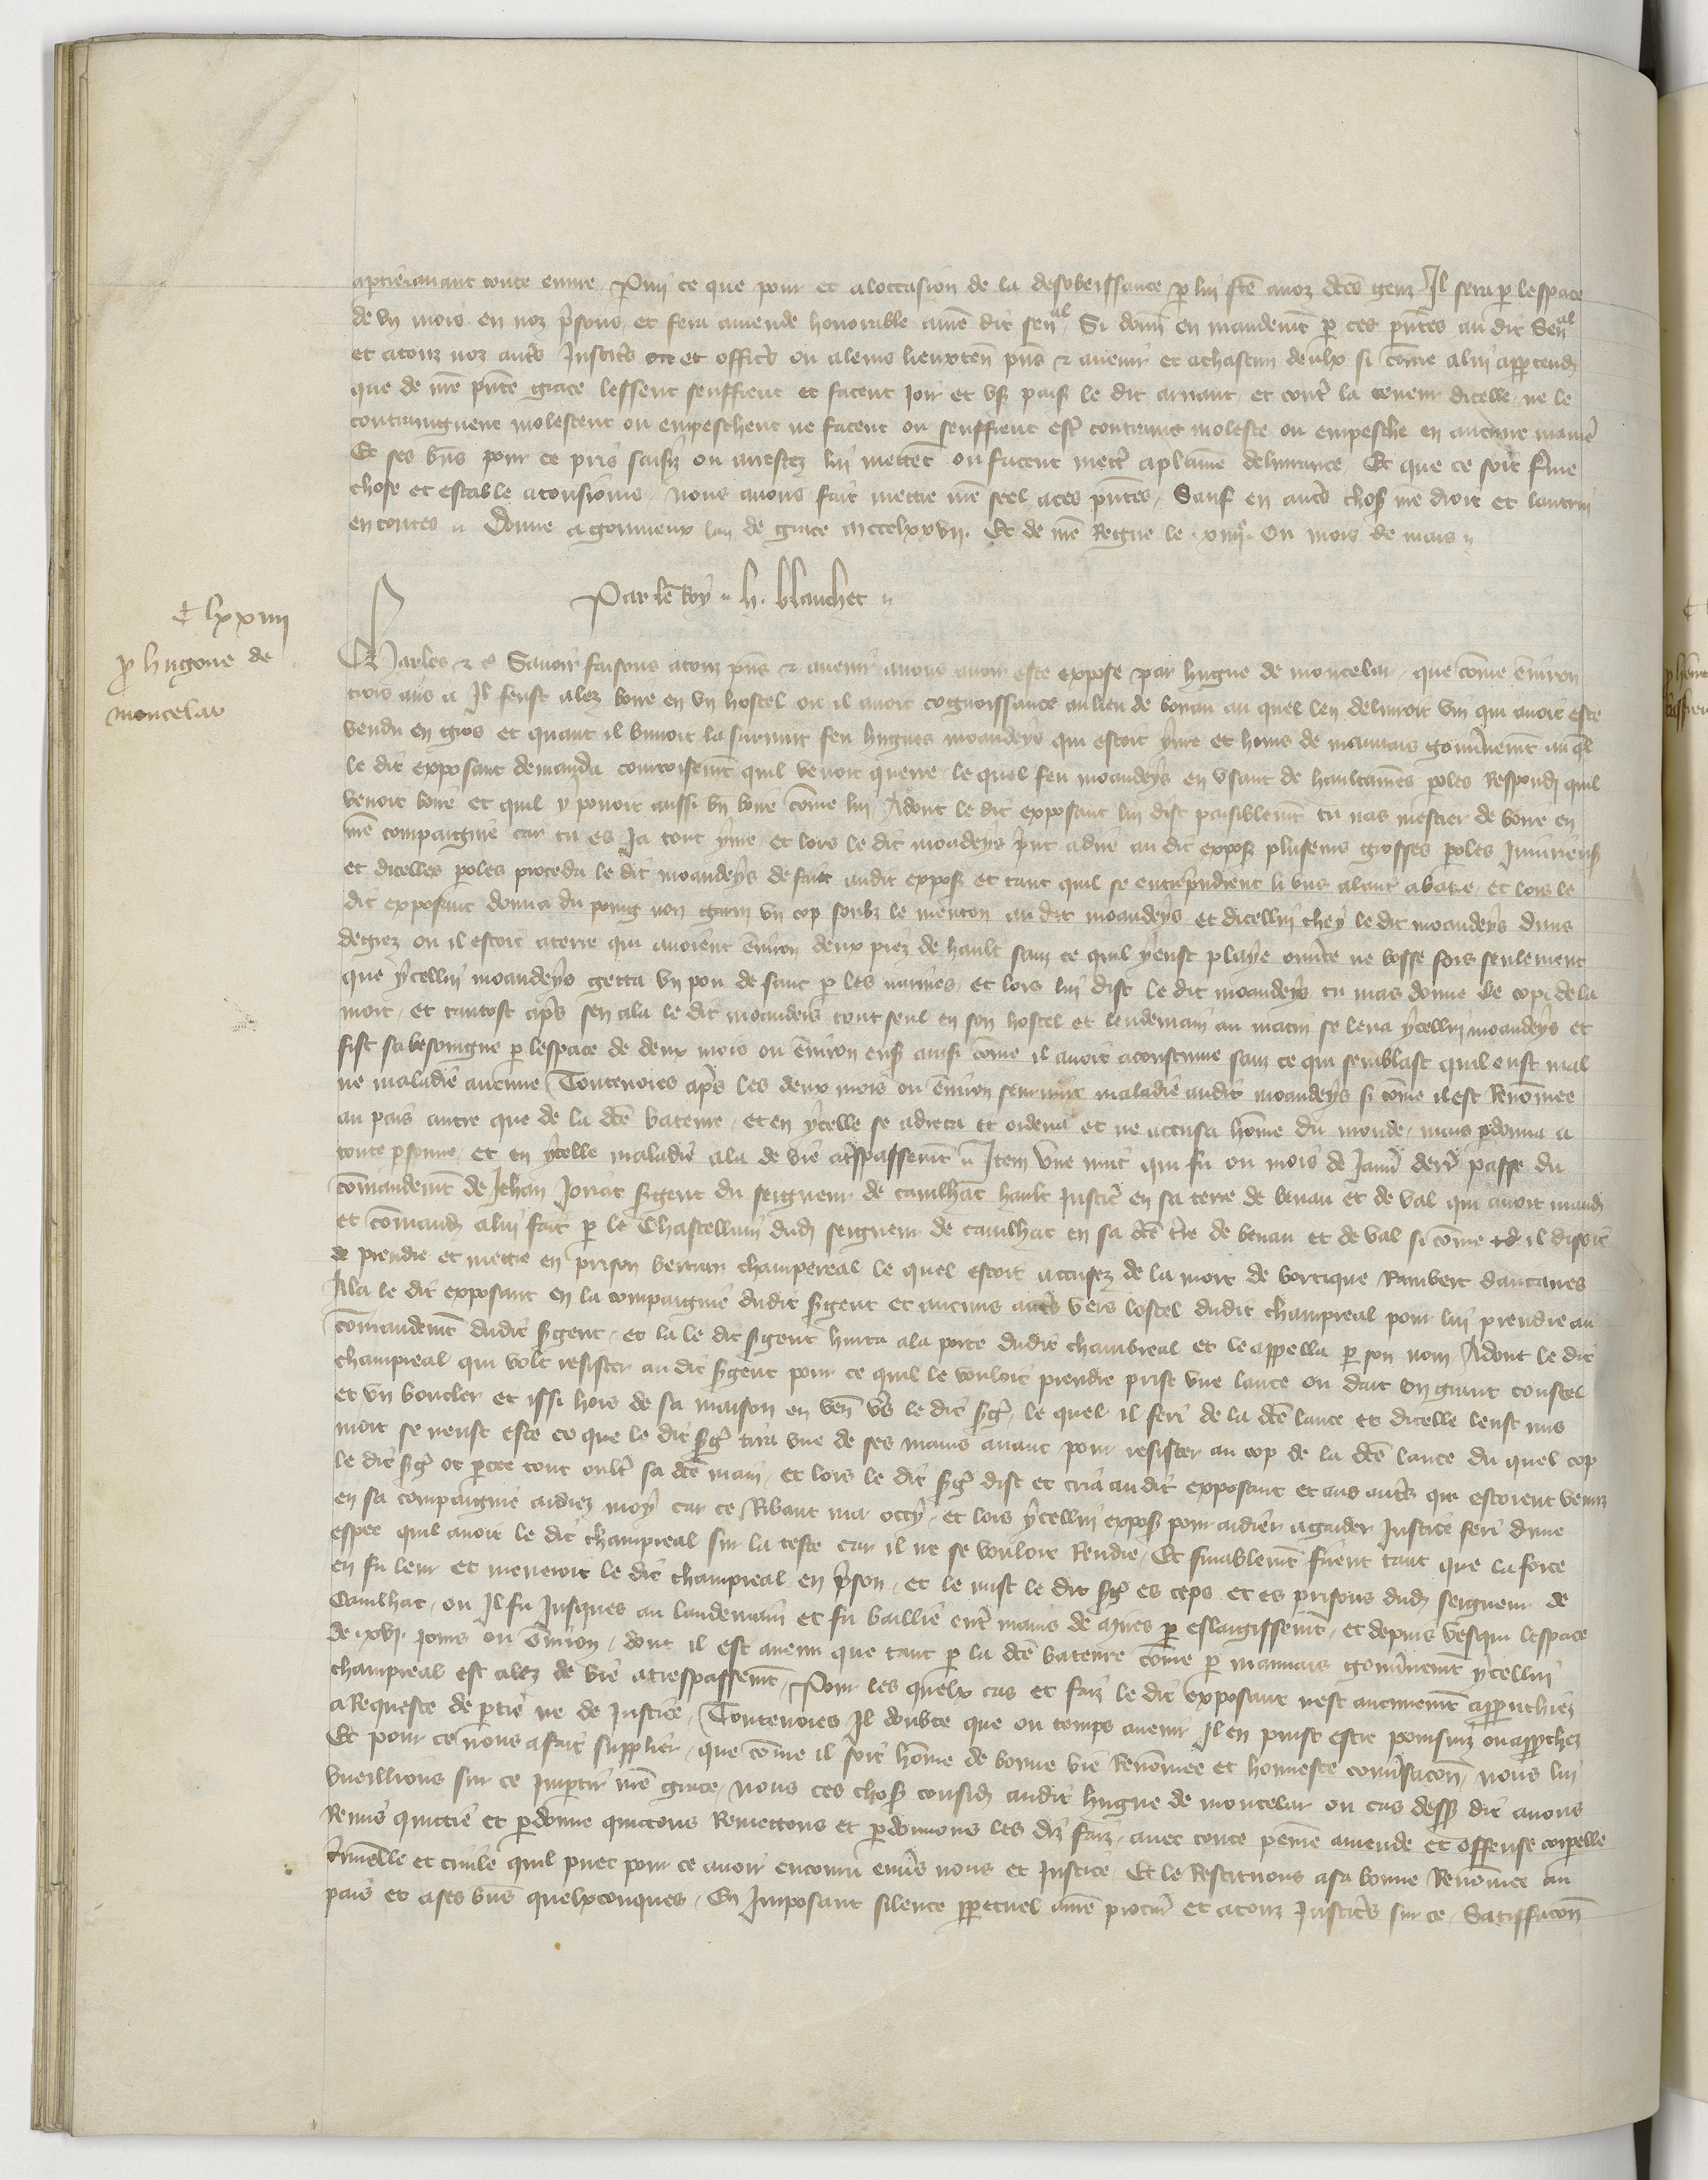 apertienant toute euure Pmi ce que pour et aloccasion de la desobeissance p lui fce auoz dces genz Il sera p lespace
de vn mois en noz psons et fera amende honorable anre dit senal Si donn en mandemt p ces pntes au dit Senal
et atouz noz autres Justiciers et officiers ou aleurs lieuxten pns & auenir et achascun deulx si come alui appartend
que de nre pnte grace lessent seuffrent et facent Joir et vser paisi le dit arnaut et contre la teneur dicelle ne le
contraignent molestent ou empeschent ne facent ou seuffrent estre contraint moleste ou empesche en aucune maniere
Et ses biens pour ce pris saisiz ou arrestez lui mettet ou facent mettre aplaine deliurance Et que ce soit ferme
chose et estable atousiours nous auons fait mettre nre seel aces pntes Sauf en autres choses nre droit et lautrui
en toutes Donne a gouuieux lan de grace mccclxxvii Et de nre Regne le xiiii ou mois de mars
Par le Roy h. blanchet
clxxiiii
p hugone de
moncelar
Charles & c Sauoir faisons atouz pns & auenir anous auoir este expose par hugue de moncelar que come enuiron
trois ans a Il feust alez boire en vn hostel ou il auoit cognoissance au lieu de benan au quel len deliuroit vin qui auoit este
vendu en gros et quant il buuoit la suruint feu hugues moandeys qui estoit yure et homs de mauuais gouuernemt au ql
le dit exposant demanda courtoisemt quil venoit querre le quel feu moandeys en vsant de haultaines poles Respond quil
venoit boire et quil y pouoit aussi bn boire come lui Adont le dit exposant lui dist paisiblemt tu nas mestier de boire en
me compaignie car tu es Ja tout yure et lors le dit moandeys prit adire au dit expos pluseurs grosses poles Iniurieuses
et dicelles poles proceda le dit moandeys de fait audit expos et tant quil se entreprindrent li vns alautre abatre et lors le
dit exposant donna du poing non garni vn cop soubz le menton au dit moandeys et dicellui chey le dit moandeys duns
degrez ou il estoit aterre qui auoient enuiron deux piez de hault sanz ce quil y eust playe ouuerte ne bosse fors seulement
que ycellui moandeys getta vn pou de sanc p les narines et lors lui dist le dit moandeys tu mas donne le cop de la
mort et tantost apres sen ala le dit moandeis tout seul en son hostel et lendemain au matin se leua ycellui moandeys et
fist sa besoingne p lespace de deux mois ou enuiron ensi come il auoit acoustume sanz ce qui semblast quil eust mal
ne maladie aucune Toutevoies apres les deux mois ou enuiron seuruint maladie audit moandeys si come il est Renomee
au pais autre que de la dce bateure et en ycelle se adreca et ordena et ne accusa home du monde mais pdonna a
toute psonne et en ycelle maladie ala de vie atrespassemt Item vne nuit qui fu ou mois de Januier derr passe du
comandemt de Jehan Jonat sgent du seigneur de camlhac hault Justicier en sa terre de benan et de val qui auoit mand
et comand alui fait p le Chastellain dud seigneur de camlhac en sa dce tre de benan et de val si come il disoit
de prendre et mettre en prison bertran champereal le quel estoit accusez de la mort de bortique Rambert dautanes
Ala le dit exposant en la compaignie dudit sgent et aucuns autres vers lostel dudit champreal pour lui prendre au
comandemt dudit sgent et la le dit sgent hurta ala porte dudit chambreal et le appella p son nom Adont le dit
champreal qui volt resister au dit sgent pour ce quil le vouloit prendre prist vne lance ou dart vn grant coustel
et vn boucler et issi hors de sa maison en ven vs le dit sgt le quel il feri de la dce lance et dicelle leust mis
mort se neust este ce que le dit sgt tira vne de ses mains auant pour resister au cop de la dce lance du quel cop
le dit sgt ot pcee tout oultre sa dce main et lors le dit sgt dist et cria au dit exposant et aus autres qui estoient venuz
en sa compaignie aidiez moy car ce Ribaut ma occy et lors ycellui expos pour aidier agarder Justice feri dune
espee quil auoit le dit champreal sur la teste car il ne se vouloit Rendre Et finablemt firent tant que la force
en fu leur et menerent le dit champreal en pson et le mist le dit sgt es ceps et es prisons dud seigneur de
Camlhac ou Il fu Jusques au landemain et fu baillie entre mains de amis p eslargissemt et depuis vesqui lespace
de xvi jours ou enuiron dont il est auenu que tant p la dce bateure come p mauuais gouuernemt ycellui
champreal est alez de vie atrespassemt Pour les quelx cas et faiz le dit exposant nest aucunemt approuchiez
a Requeste de ptie ne de Justice Toutevoies Il doubte que ou temps auenir Il en puist estre poursuiz ou approchez
Et pour ce nous a fait supplier que come il soit home de bonne vie Renomee et honneste conuersacon nous lui
vueillions sur ce Impartir nre grace nous ces choses consid audit hugue de moncelar ou cas dessus dit auons
Remis quittie et pdonne quictons Remettons et pdonnons les diz faiz auec toute peine amende et offense corpelle
criminelle et ciuile quil puet pour ce auoir encouru enuers nous et Justice Et le Restituons asa bonne Renomee au
pais et ases biens quelxconques En Imposant silence ppetuel anre procur et atouz Justiciers sur ce Satisfacon